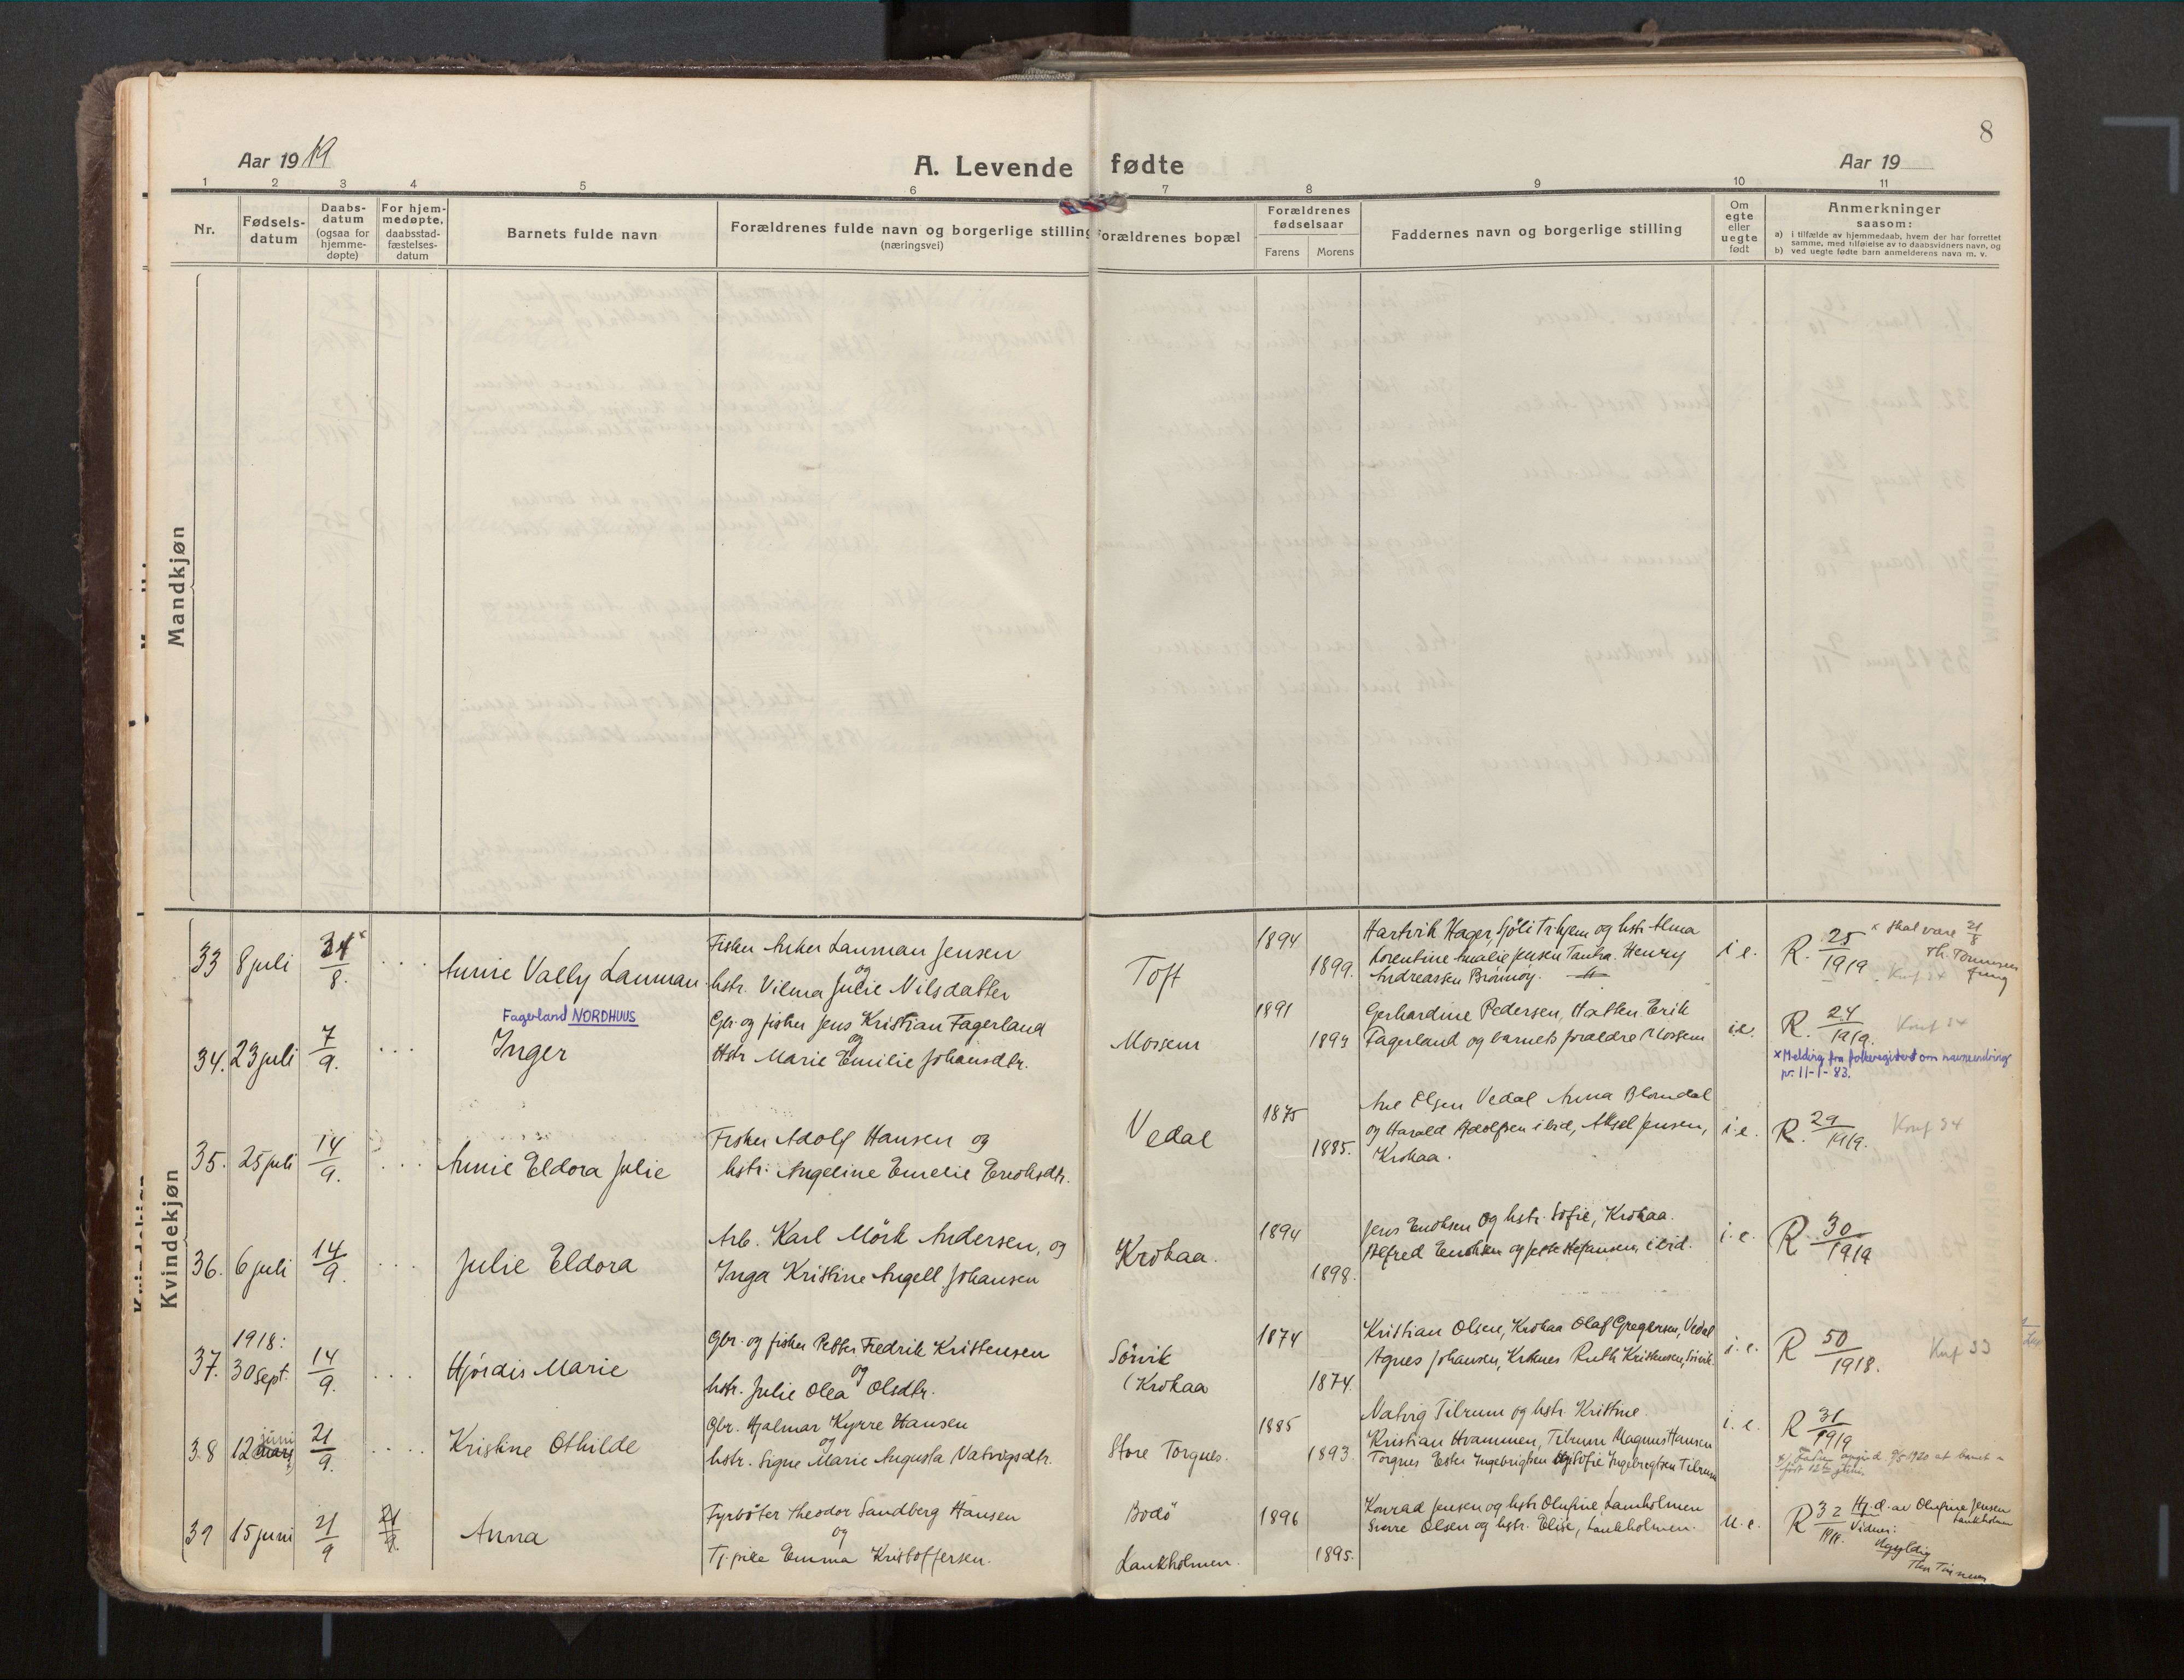 8
Aar 1919
A. Levende fødte
Aar 19
1 2 3 4 5 6 7 8 9 10 11
Nr.
Fødsels-
datum
Daabs-
datum
(ogsaa for
hjemme-
døpte)
For hjem-
medøpte,
daabsstad-
fæstelses-
datum
Barnets fulde navn
Forældrenes fulde navn og borgerlige stilling
(næringsvei)
Forældrenes bopæl
Forældrenes
fødselsaar
Farens
Morens
Faddernes navn og borgerlige stilling
Om
egte
eller
uegte
født
Anmerkninger
saasom:
a) i tilfælde av hjemmedaab, hvem der har forrettet
samme, med tilføielse av to daabsvidners navn, og
b) ved uegte fødte barn anmelderens navn m. v.
Mandkjøn
Kvindekjøn
33 8 juli 8.
Annie Vally Lauman
Fisker Anker Lauman Jensen
og
hstr. Vilma Julie Nilsdatter
Toft
1894
1899.
Hartvik Hager, og hstr. Alma
Lorentine Amalie Jensen Henry
Andreassen Brønnøy.
i e.
R. 25/1919
x skal være 21/8
Th. Tønnesen
fung
Konf 34
34. 23 juli 7/9.
Fagerland NORDHUUS
Inger
Gbr. og fisker Jens Kristian Fagerland
og
Hstr Marie Emilie Johansdtr.
Mosem
1891
1893
Gerhardine Pedersen, Hatten Erik
Fagerland og barnets forældre Mosem
i.e.
R. 24/1919.
Konf 34
x Melding fra folkeregisteret om navneendring
pr. 11-1-83.
35. 25 juli 14/9.
Annie Eldora Julie
Fisker Adolf Hansen og
hstr. Angeline Emelie
Vedal
1875
1885.
Olsen Vedal Anna Blomdal
og Harald Adolfsen ibid, Aksel Jensen,
Krokaa.
i e.
R. 29/1919.
Konf 34
36. 6 juli 14/9.
Julie Eldora
Arb. Karl Mörk Andersen, og
Inga Kristine Angell Johansen
Krokaa.
1894
1898.
Jens Enoksen og hstr. Sofie, Krokaa.
Alfred Enoksen og ibid.
i. e.
R. 30/1919
37.
1918:
30 sept. 14/9.
Hjørdis Marie
Gbr. og fisker Petter Fredrik Kristensen
og
hstr. Julie Olea Olsdtr.
Sörvik
(Krokaa
1874
1874.
Kristian Olsen, Krokaa Olaf Gregersen, Vedal
Agnes Johansen, Ruth Kristensen, Sörvik.
i. e.
R 50/1918.
Konf 33
38 12 juni mars 21/9.
Kristine Othilde
Gbr. Hjalmar Kyrre Hansen
og
hstr. Signe Marie Augusta Natvigsdtr.
Store Torgnes.
1885
1893.
Natvig Tilrum og hstr. Kristine.
Kristian Hvammen, Tilrum Magnus Hansen
Torgnes Ester Ingebrigtsen Sofie Ingebrigtsen Tilrum
i. e.
R 31/1919
x) Faderen 1920 at barnet
født 12te juni
39 15 juni 21/9 21/9.
Anna
Fyrböter Theodor Sandberg Hansen
og
Tj. pike Emma Kristoffersen.
Bodö
Lankholmen.
1896
1895.
Konrad Jensen og hstr. Olufine Lankholmen
Sverre Olsen og hstr. Elise, Lankholmen.
u. e.
R 32/1919.
Hj. d. av Olufine Jensen
Lankholmen
Vidner:
Ugyldig